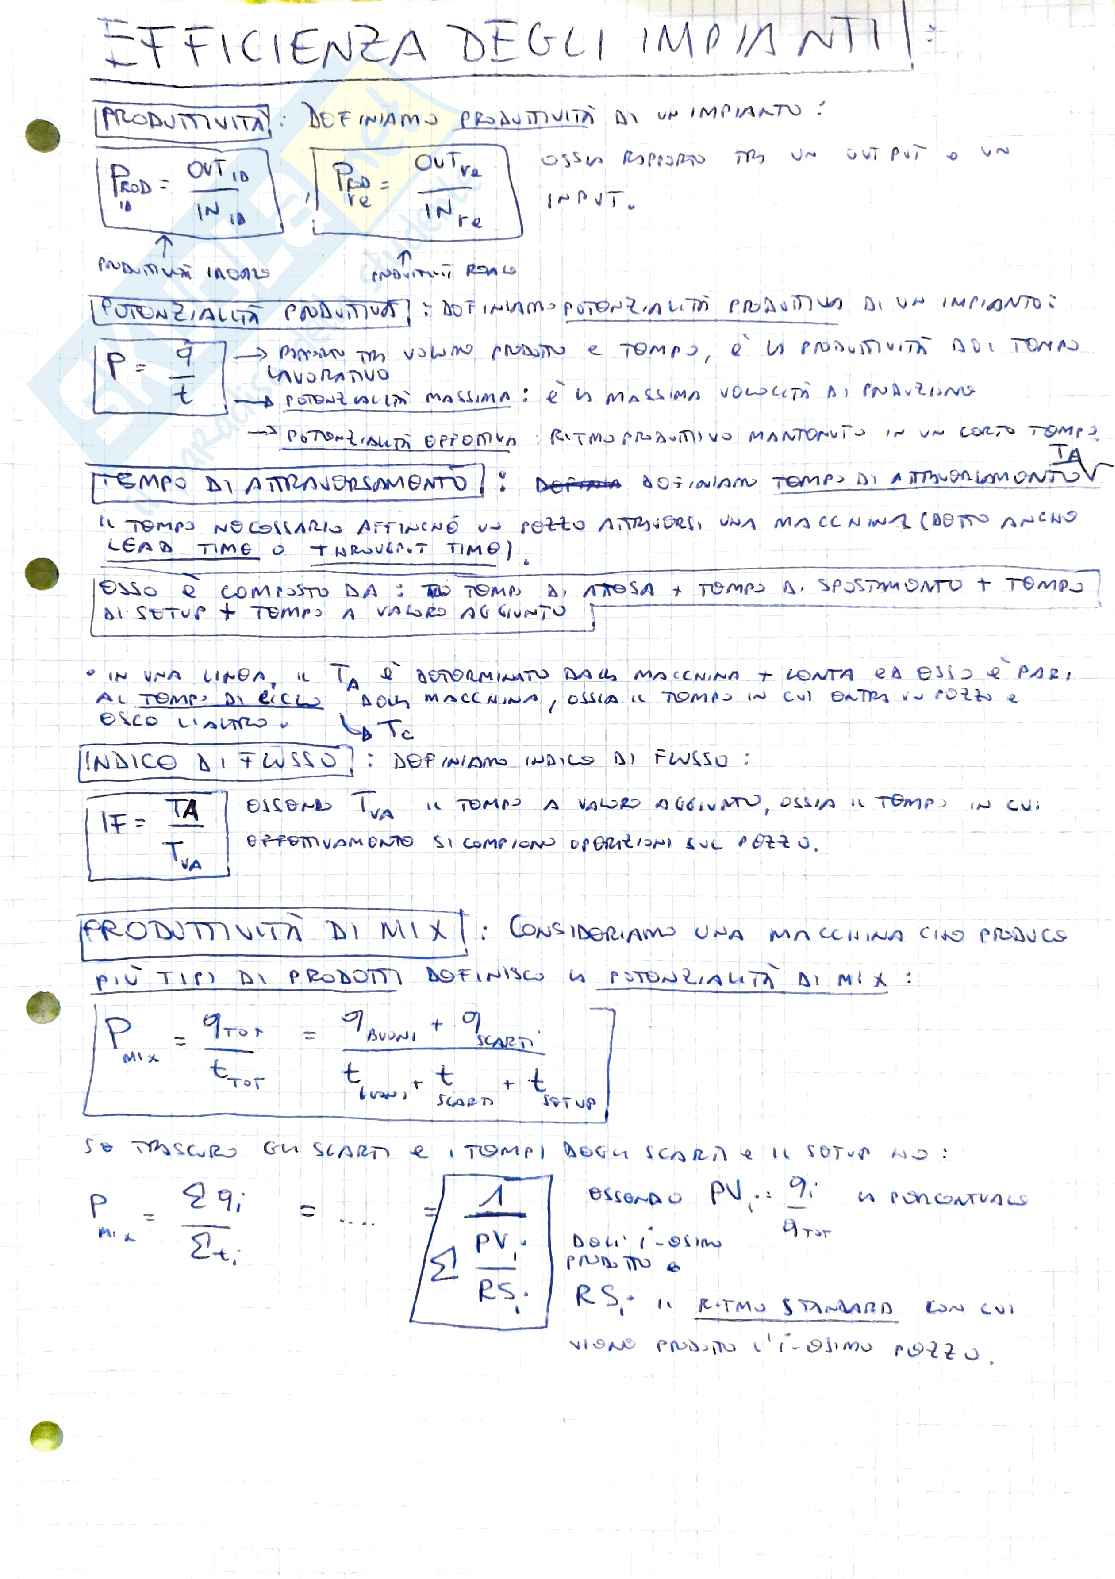 EFFICIENZA DEGLI IMPIANTI:
PRODUTTIVITÀ: DEFINIAMO PRODUTTIVITÀ DI UN IMPIANTO:
P_ROD ID = OUT_ID / IN_ID , P_ROD re = OUT_re / IN_re OSSIA RAPPORTO TRA UN OUTPUT E UN
INPUT.
PRODUTTIVITÀ IDEALE PRODUTTIVITÀ REALE
POTENZIALITÀ PRODUTTIVA: DEFINIAMO POTENZIALITÀ PRODUTTIVA DI UN IMPIANTO:
P = q / t → RAPPORTO TRA VOLUME PRODOTTO E TEMPO, È LA PRODUTTIVITÀ DEL TEMPO
LAVORATIVO
→ POTENZIALITÀ MASSIMA: È LA MASSIMA VELOCITÀ DI PRODUZIONE
→ POTENZIALITÀ EFFETTIVA: RITMO PRODUTTIVO MANTENUTO IN UN CERTO TEMPO.
TEMPO DI ATTRAVERSAMENTO: DEFINIAMO TEMPO DI ATTRAVERSAMENTO TA
IL TEMPO NECESSARIO AFFINCHÉ UN PEZZO ATTRAVERSI UNA MACCHINA (DETTO ANCHE
LEAD TIME O THROUGHPUT TIME).
ESSO È COMPOSTO DA: TEMPO DI ATTESA + TEMPO DI SPOSTAMENTO + TEMPO
DI SETUP + TEMPO A VALORE AGGIUNTO
• IN UNA LINEA, IL T_A È DETERMINATO DALLA MACCHINA + LENTA ED ESSO È PARI
AL TEMPO DI CICLO DELLA MACCHINA, OSSIA IL TEMPO IN CUI ENTRA UN PEZZO E
ESCE L'ALTRO. → T_C
INDICE DI FLUSSO: DEFINIAMO INDICE DI FLUSSO:
IF = TA / T_VA ESSENDO T_VA IL TEMPO A VALORE AGGIUNTO, OSSIA IL TEMPO IN CUI
EFFETTIVAMENTE SI COMPIONO OPERAZIONI SUL PEZZO.
PRODUTTIVITÀ DI MIX: CONSIDERIAMO UNA MACCHINA CHE PRODUCE
PIÙ TIPI DI PRODOTTI DEFINISCO LA POTENZIALITÀ DI MIX:
P_MIX = q_TOT / t_TOT = q_BUONI + q_SCARTI / t_BUONI + t_SCARTI + t_SETUP
SE TRASCURO GLI SCARTI E I TEMPI DEGLI SCARTI E IL SETUP HO:
P_MIX = Σq_i / Σt_i = .... = 1 / Σ PV_i / RS_i ESSENDO PV_i = q_i / q_TOT LA PERCENTUALE
DELL'i-ESIMO
PRODOTTO E
RS_i IL RITMO STANDARD CON CUI
VIENE PRODOTTO L'i-ESIMO PEZZO.